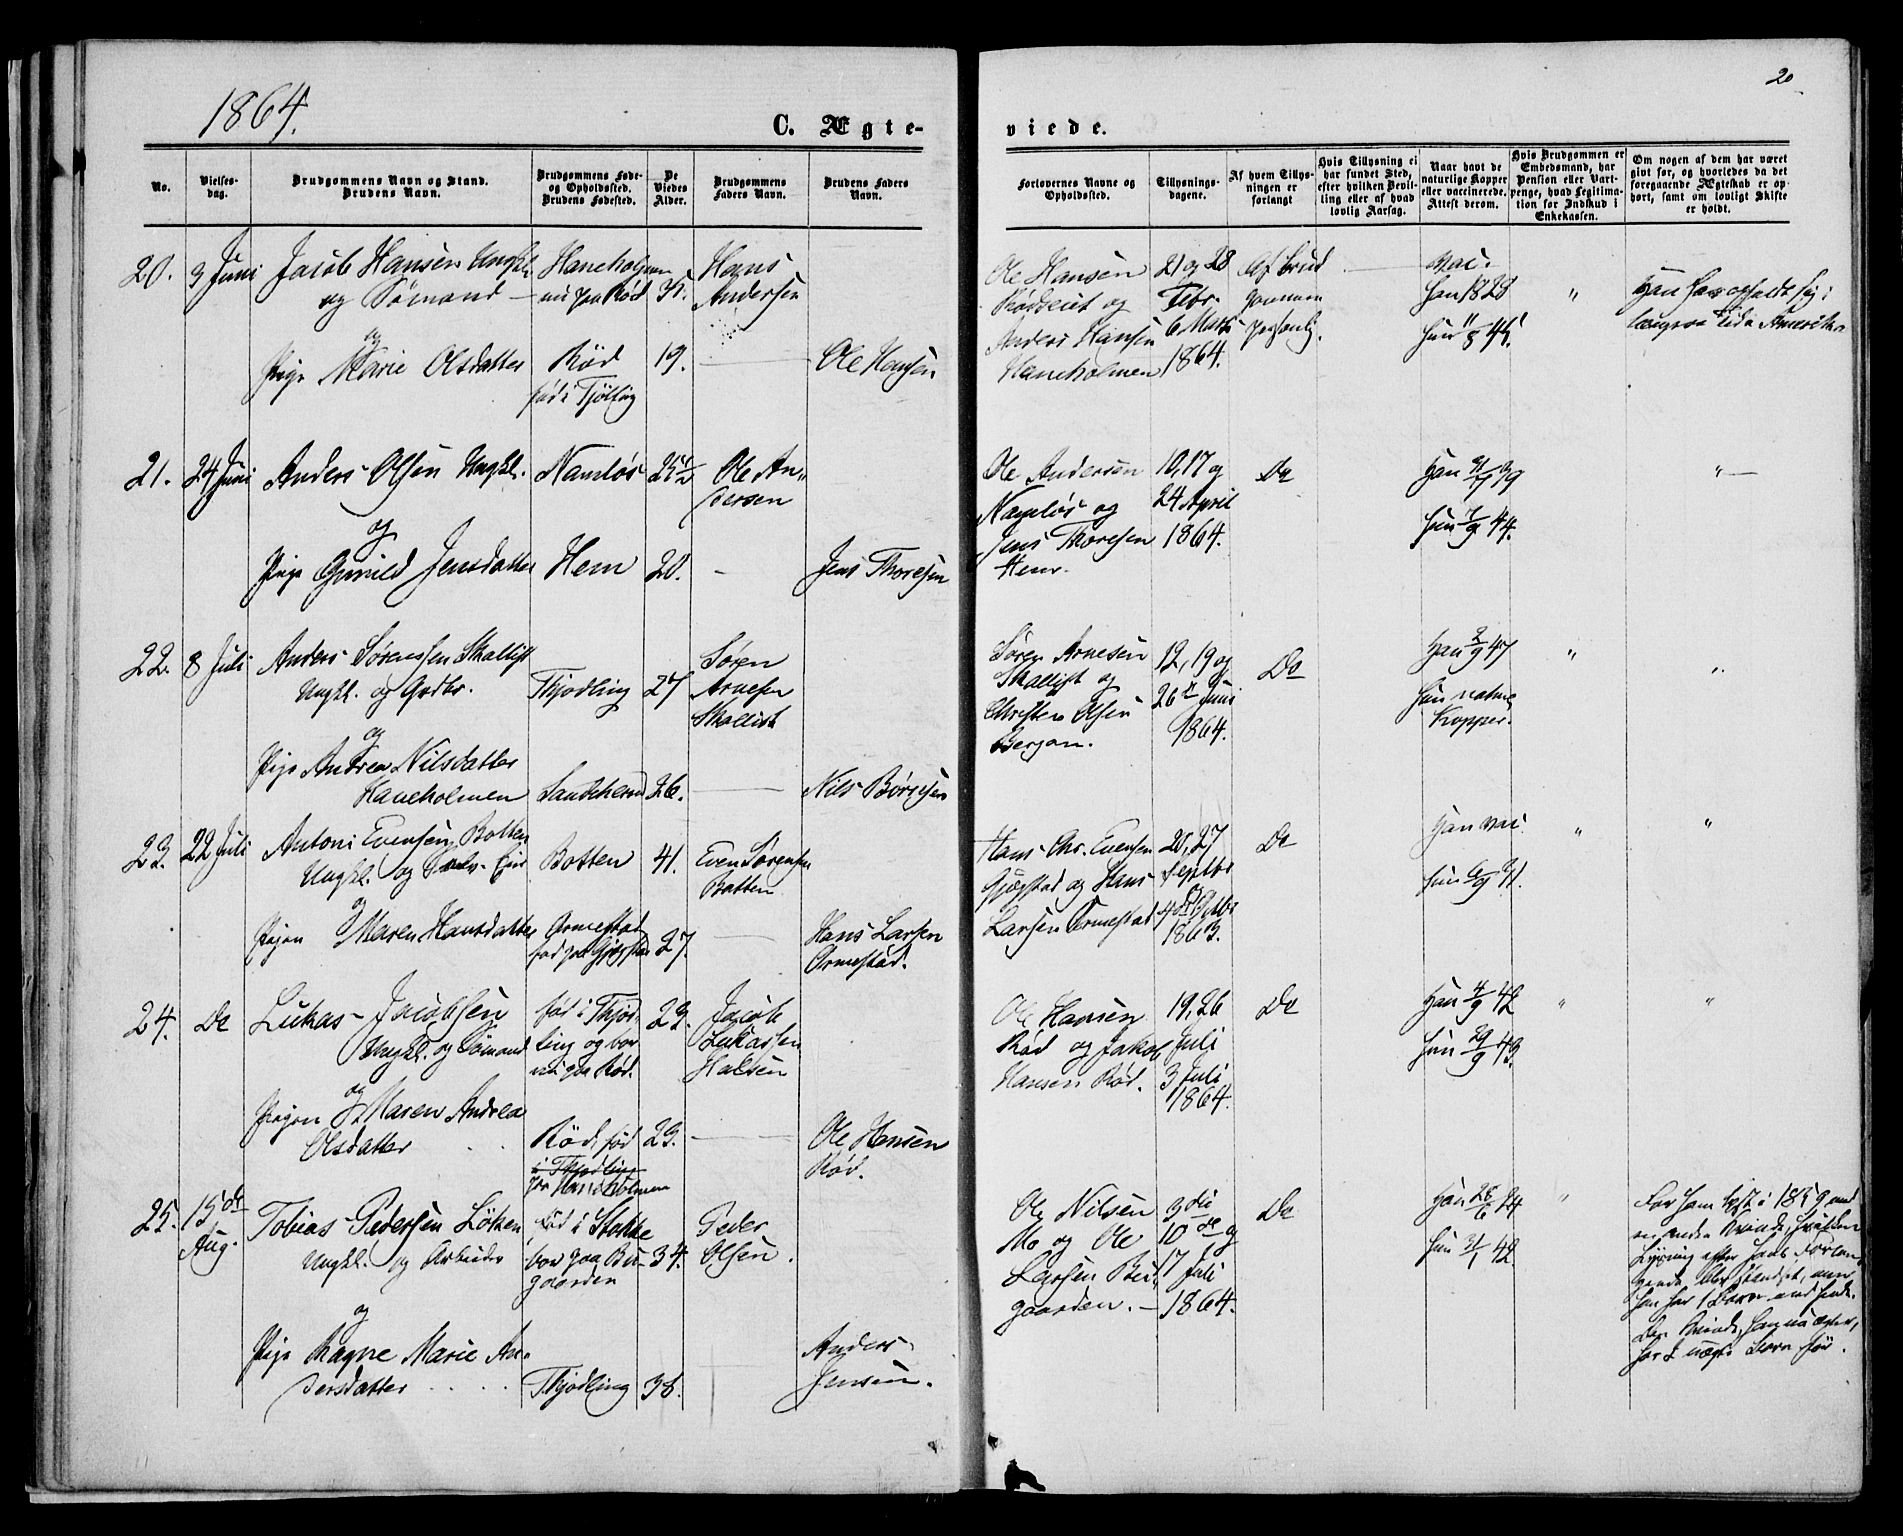 1864.
20
C. Ægte-
viede.
No.
Vielses-
dag.
Brudgommens Navn og Stand.
Brudens Navn.
Brudgommens Føde-
og Opholdssted.
Brudens Fødested.
De
Viedes
Alder.
Brudgommens
Faders Navn.
Brudens Faders
Navn.
Forlovernes Navne og
Opholdssted.
Tillysnings-
dagene.
Af hvem Tillys-
ningen er
forlangt
Hvis Tillysning ei
har fundet Sted,
efter hvilken Bevil-
ling eller af hvad
lovlig Aarsag.
Naar havt de
naturlige Kopper
eller vaccinerede.
Attest derom.
Hvis Brudgommen er
Embedsmand, har
Pension eller Vart-
penge, hvad Legitima-
tion for Indskud i
Enkekassen.
Om nogen af dem har været
givt før, og hvorledes da det
foregaaende Ægteskab er op-
hørt, samt om lovligt Skifte
er holdt.
20.
3 Juni
Jacob Hansen Ungkl.
og Sømand
og
Pige Marie Olsdatter
Haneholmen
nu paa Rød
Rød
fød i Tjølling
35.
19.
Hans
Andersen
Ole Hansen
Ole Hansen
og
Anders Hansen
Haneholmen
21 og 28
Febr.
6 Marts
1864.
Af Brud
gommen
personlig.
vac.
han 1828
han har opholdt sig i
længere Tid i Amerika
21.
24 Juni
Anders Olsen Ungkl.
og
Pige Gunild Jensdatter
Namløs
Hem
25½
20.
Ole An-
dersen
Jens Thoresen
Ole Andersen
Namløs og
Jens Thoresen
Hem.
10, 17 og
24 April
1864.
Do
han 39
hun 44.
22.
8 Juli
Anders Sørensen Skallist
Ungkl. og Grdbr.
og
Pige Andrea Nilsdatter
Haneholmen
Thjødling
Sandeherred
27
26.
Søren
Arnesen
Skallist
Nils Børgesen
Søren Arnesen
Skallist og
Christen Olsen
Bergan.
12, 19 og
26 Juni
1864.
Do
han 2/9 47
hun naturl.
Kopper.
23.
22 Juli
Antoni Evensen Botten
Ungkl. og Selv-Eier
og
Pigen Maren Hansdatter
Botten
Ormestad
fød paa
41.
27.
Even Sørensen
Botten
Hans Larsen
Ormestad.
Hans Chr. Evensen
og Hans
Larsen Ormestad
20, 27
Septbr
4 Octbr
1863.
Do
han vac.
24.
Do
Lukas Jacobsen
Ungkl. og Sømand
og
Pigen Maren Andrea
Olsdatter
født i Thjød-
ling og bor
nu paa Rød.
Rød, fød
paa Haneholmen
23.
23.
Jacob
Lukassen
Halsen
Ole Hansen
Rød.
Ole Hansen
Rød og Jakob
Hansen Rød.
19, 26
Juli
3 Juli
1864.
Do
han 4/9 42
hun 29/9 43
25.
15de
Aug.
Tobias Pedersen Løken
Ungkl. og Arbeider
og
Pige Ragne Marie An-
dersdatter
født i Stokke
bor paa Bu-
gaarden
Thjødling
34.
38.
Peder
Olsen.
Anders
Jensen.
Ole Nilsen
Mo og Ole
Larsen Bu-
gaarden.
3die
10de og
17 Juli
1864.
Do
For ham lyst i 1859 med
en anden Kvinde,
Lysning efter hans Forlan-
gende blev standset, men
han har 1 Barn med hende.
Den Kvinde, han nu ægter,
har 2 uægte Børn før.